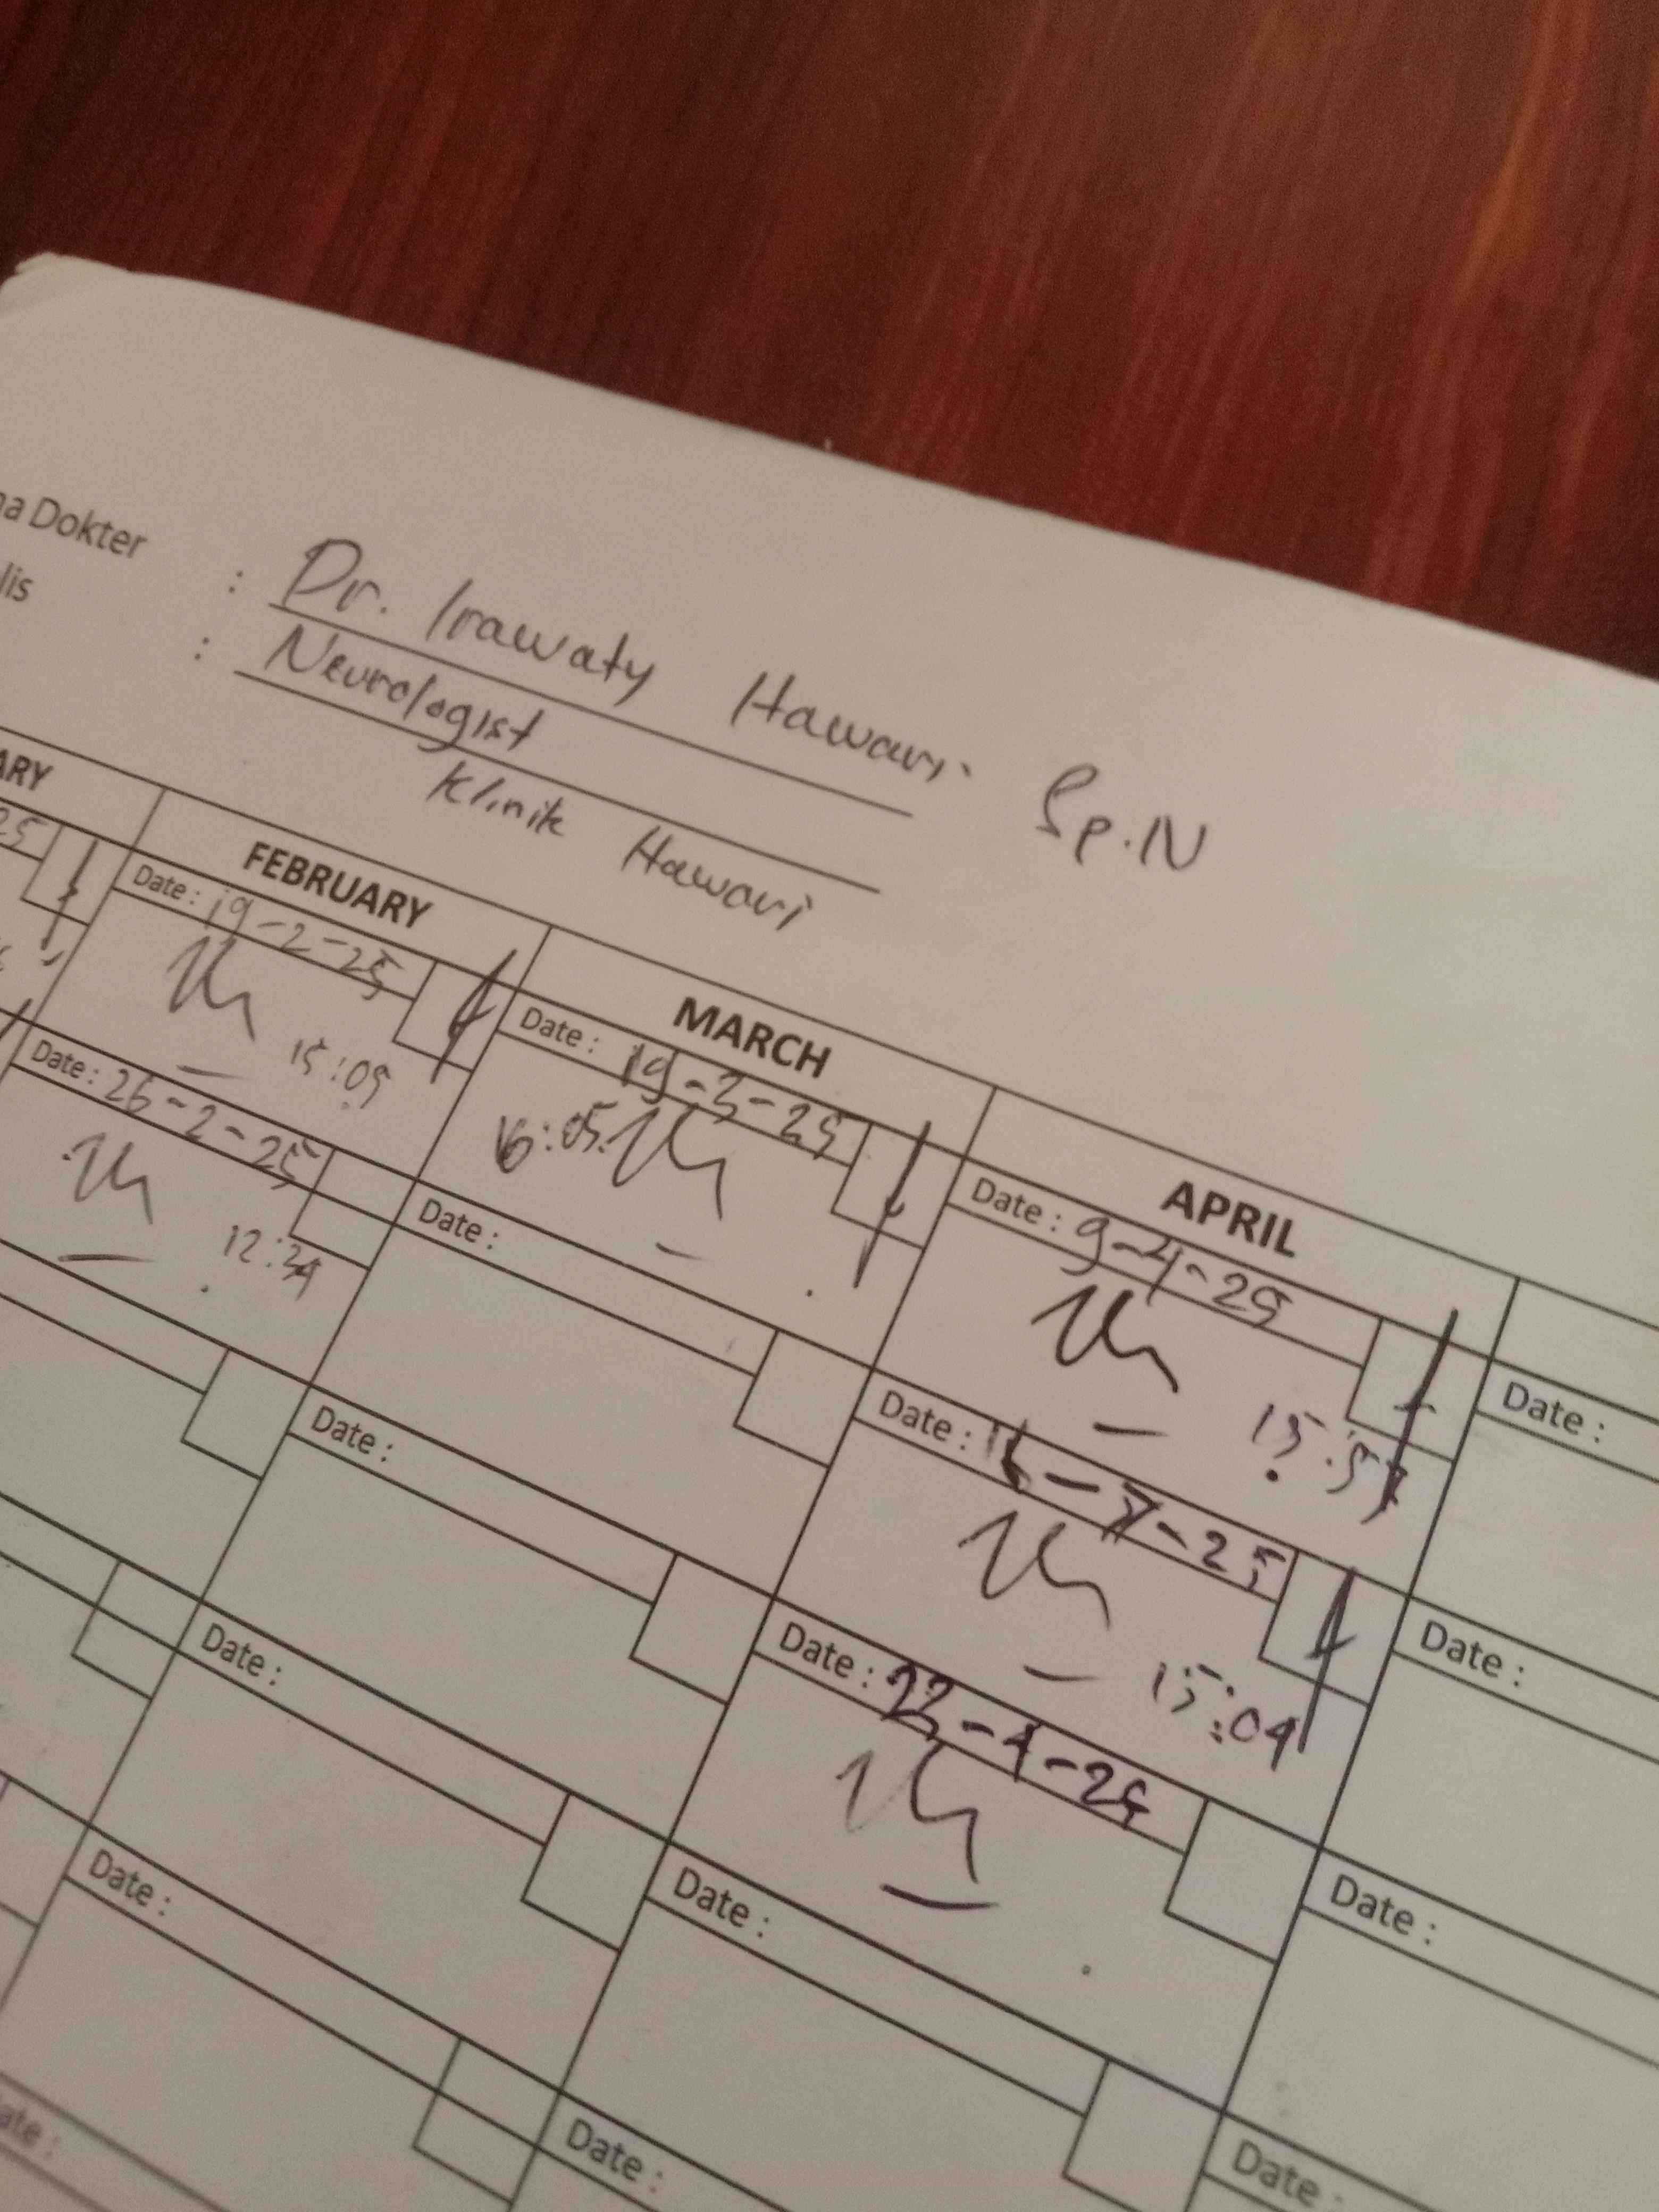 Dokter : Dr. Irawaty Hawari. Sp.N
: Neurologist
Klinik Hawari
FEBRUARY
MARCH
APRIL
Date : 19-2-25
15:09
Date : 26-2-25
12:34
Date : 19-3-25
16:05
Date :
Date :
Date :
Date :
Date : 9-4-25
15:57
Date : 16-4-25
15:04
Date : 22-4-25
Date :
Date :
Date :
Date :
Date :
Date :